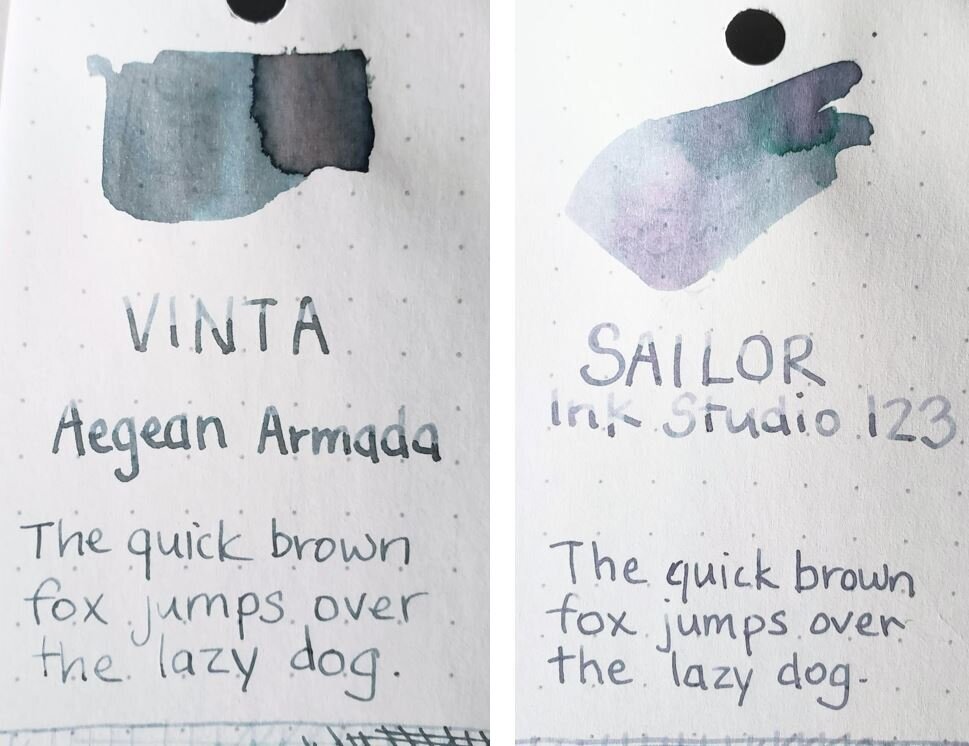 VINTA
Aegean Armada
The quick brown
fox jumps over
the lazy dog.
SAILOR
Ink Studio 123
The quick brown
fox jumps over
the lazy dog.